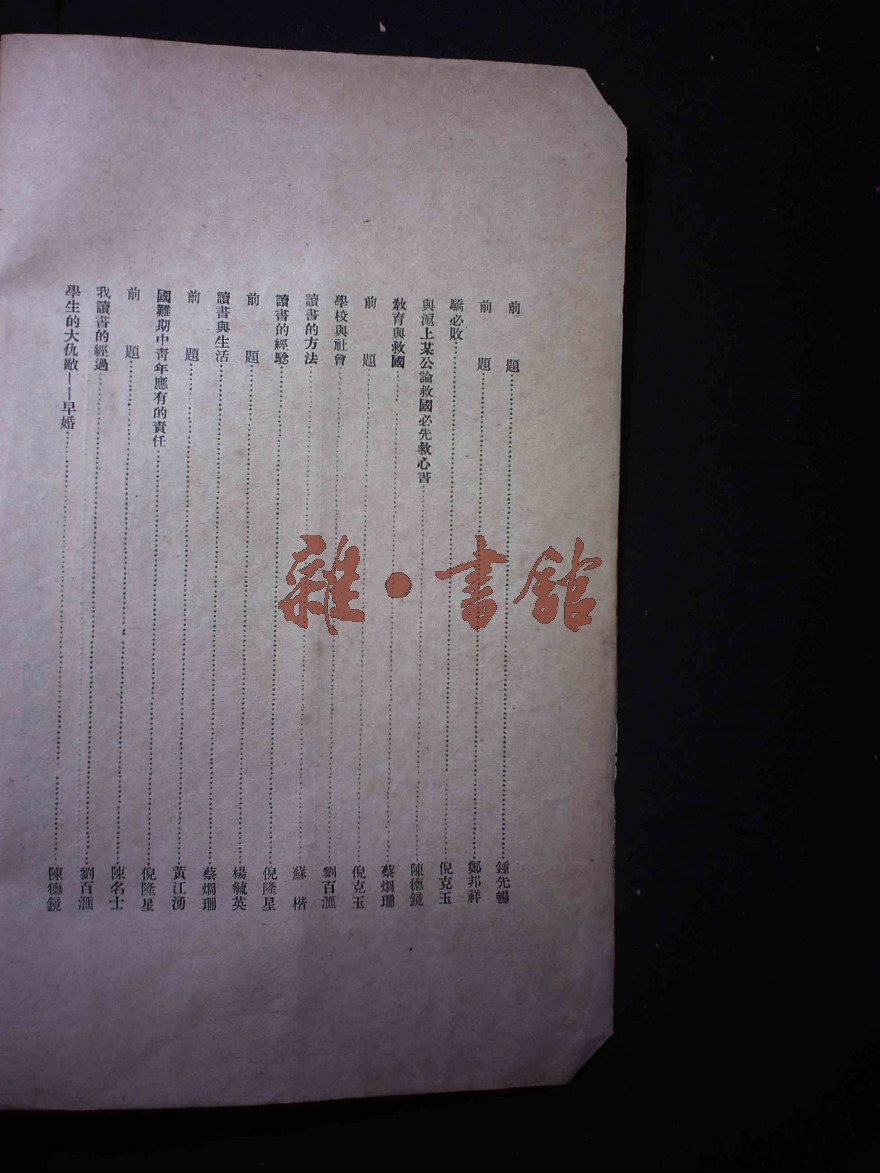 前題……鍾先暢
前題……鄭邦祥
驕必敗……倪克玉
與滬上某公論救國必先救心書……陳德鏡
教育與救國……蔡燗珊
前題……倪克玉
學校與社會……劉百滙
讀書的方法……蘇楷
讀書的經驗……倪隆星
前題……楊毓英
讀書與生活……蔡燗珊
前題……黃江湧
國難期中青年應有的責任……倪隆星
前題……陳名士
我讀書的經過……劉百滙
學生的大仇敵——早婚……陳德鏡
雜·書館